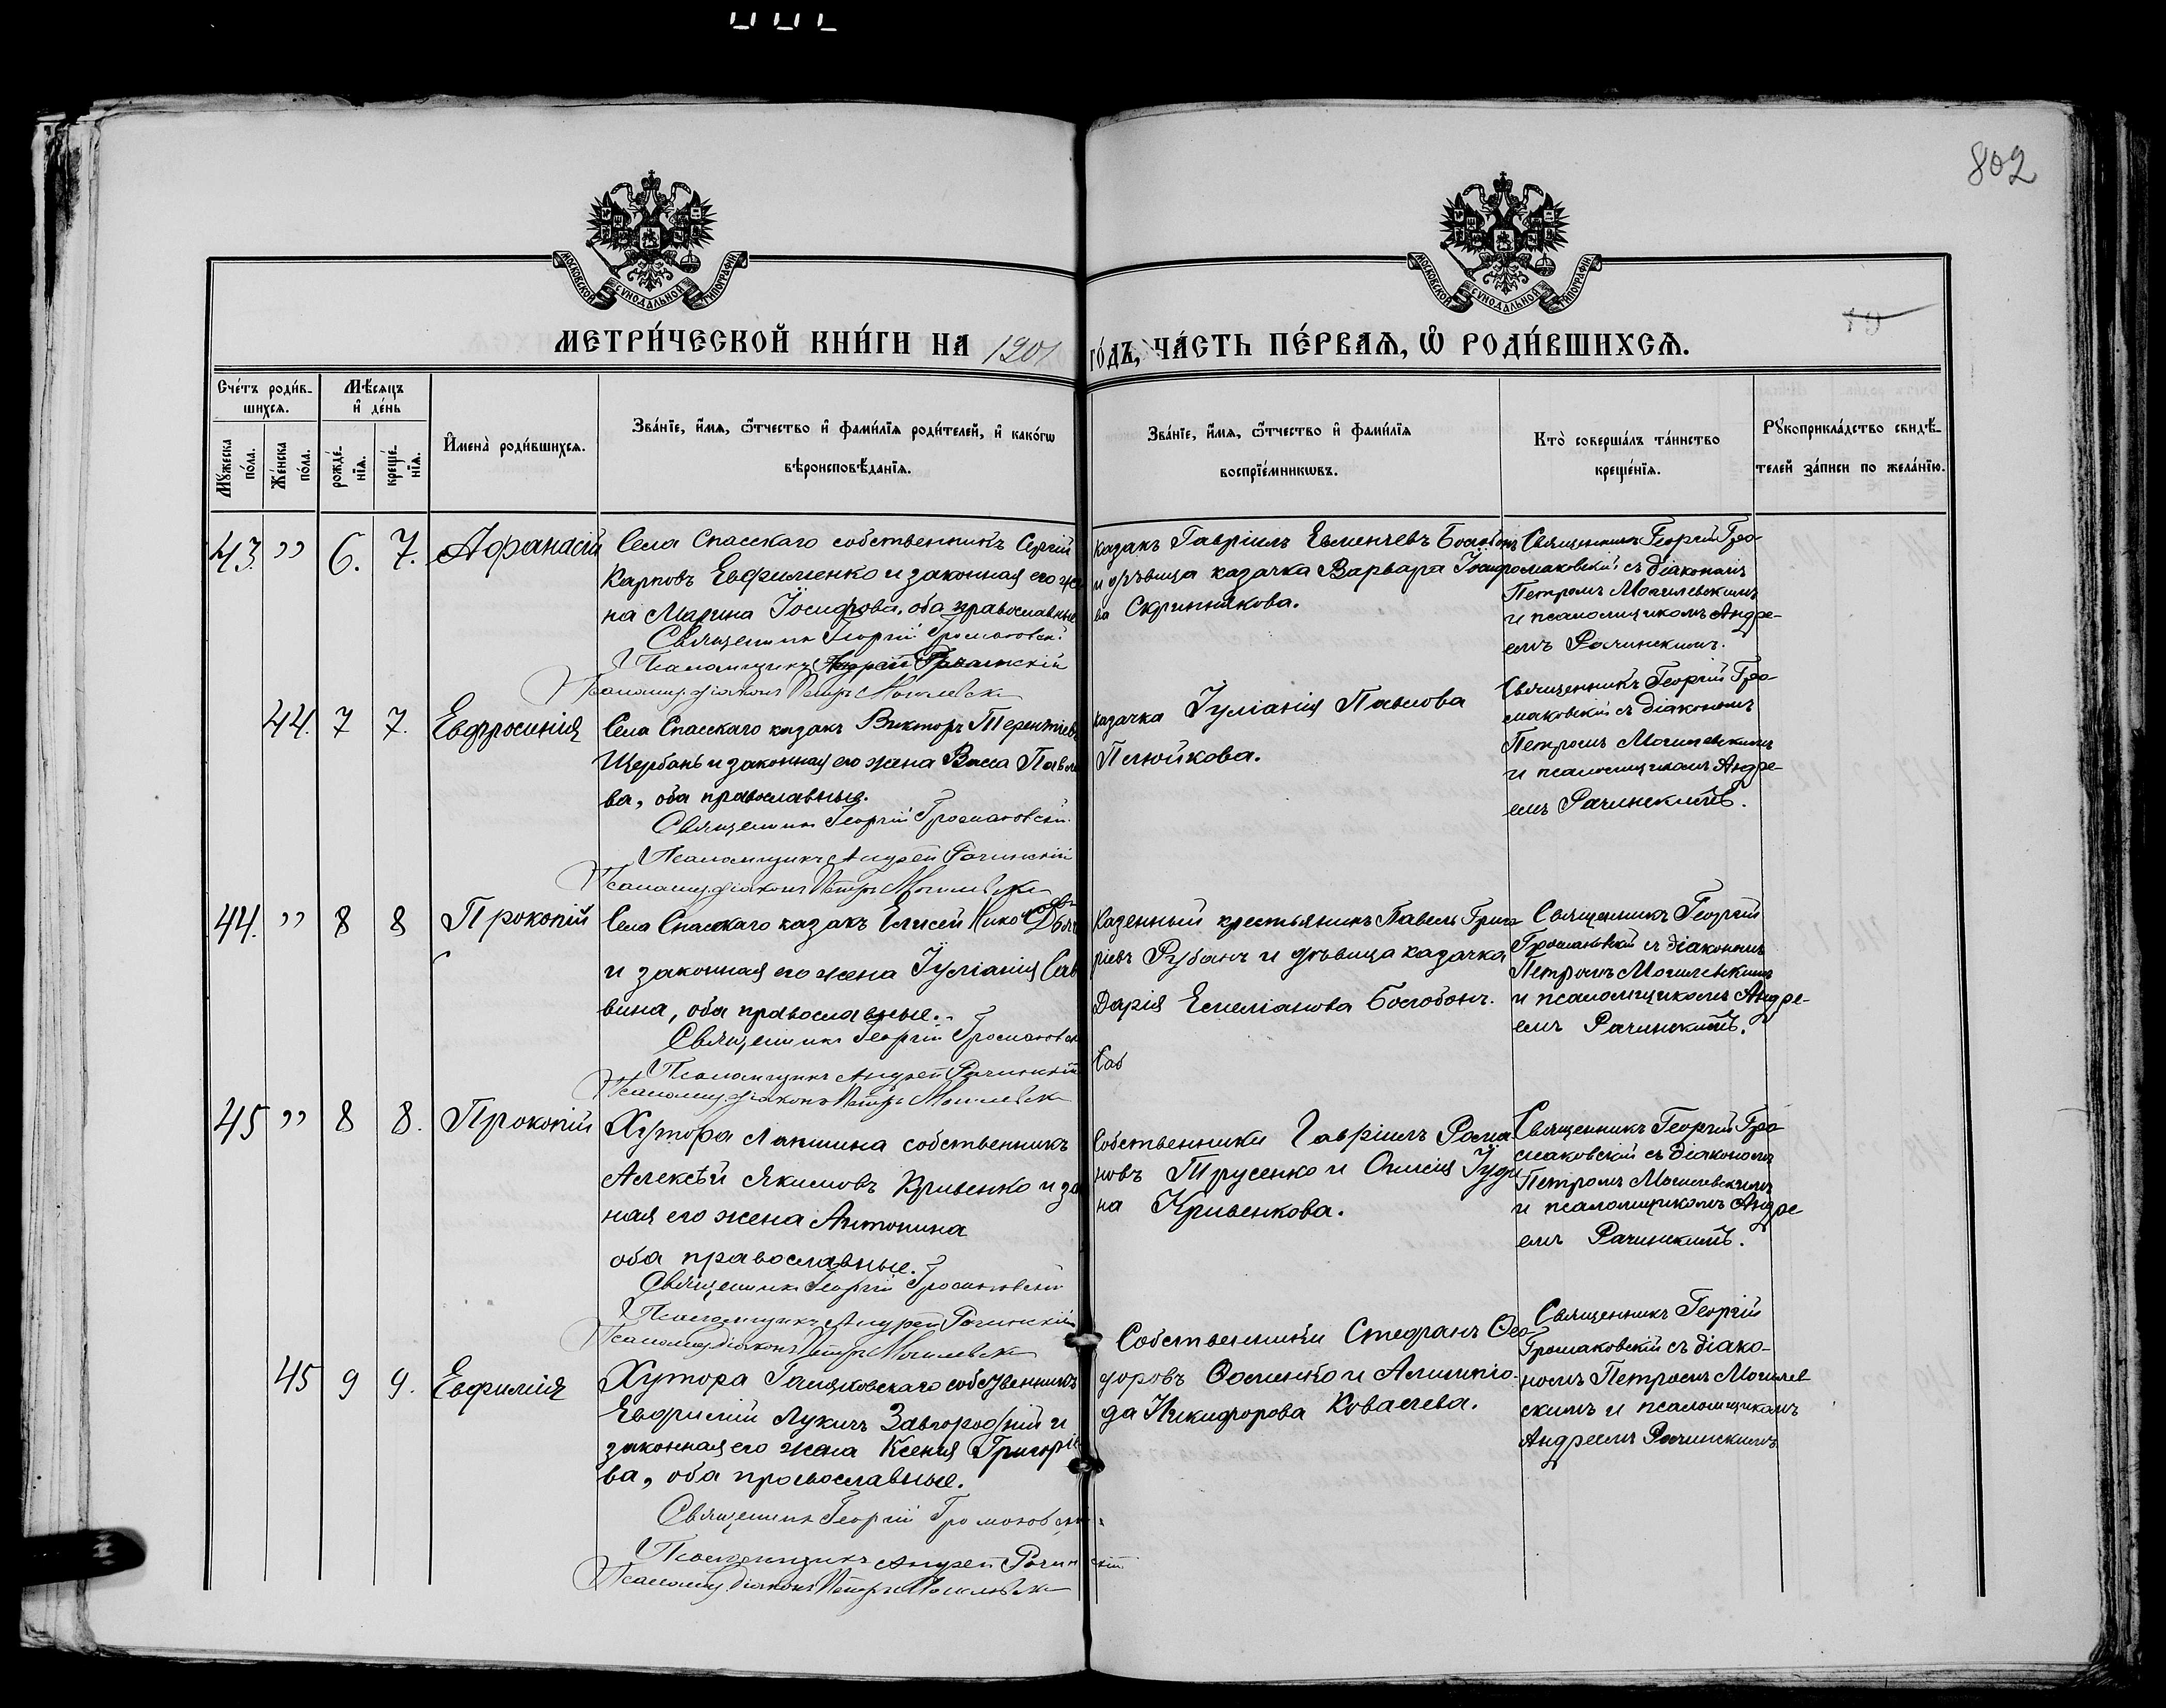 802
МОСКОВСКОЙ СѴНОДАЛЬНОЙ ТИПОГРАФІИ
МОСКОВСКОЙ СѴНОДАЛЬНОЙ ТИПОГРАФІИ
19
МЕТРИ́ЧЕСКОЙ КНИ́ГИ НА 1901 ГО́ДЪ, ЧА́СТЬ ПЕ́РВАѦ, Ѡ҆ РОДИ́ВШИХСѦ.
Сче́тъ роди́в-
шихсѧ.
Мꙋ́жеска по́ла.
Же́нска по́ла.
Мѣ́сѧцъ
и҆ де́нь
рожде́-
нїѧ.
креще́-
нїѧ.
И҆мена̀ роди́вшихсѧ.
Зва́нїе, и҆́мѧ, ѻ҆́тчество и҆ фами́лїѧ роди́телей, и҆ како́гѡ
вѣроисповѣ́данїѧ.
Зва́нїе, и҆́мѧ, ѻ҆́тчество и҆ фами́лїѧ
воспрїе́мникѡвъ.
Кто̀ соверша́лъ та́инство
креще́нїѧ.
Рꙋкоприкла́дство свидѣ́-
телей за́писи по жела́нїю.
43. " 6. 7. Афанасій
Села Спасскаго собственникъ Сергій
Карповъ Евфименко и законная его же
на Марина Іосифова, оба православные
Священникъ Георгій Громаковскій
Псаломщикъ Андрей Рачинскій
Псаломщ. діаконъ Петръ Могилевск
казакъ Гавріилъ Евменіевъ Боскобонъ
и дѣвица казачка Варвара Іосифо
ва Скринникова.
Священникъ Георгій Гро
маковскій съ діакономъ
Петромъ Могилевскимъ
и псаломщикомъ Андре-
емъ Рачинскимъ.
44. 7 7. Евфросинія
Села Спасскаго казакъ Викторъ Терентіевъ
Щербань и законная его жена Васса Павло
ва, оба православные.
Священникъ Георгій Громаковскій
Псаломщикъ Андрей Рачинскій
Псаломщ. діаконъ Петръ Могилевск
казачка Іуліанія Павлова
Плюйкова.
Священникъ Георгій Гро
маковскій съ діакономъ
Петромъ Могилевскимъ
и псаломщикомъ Андре-
емъ Рачинскимъ.
44. " 8 8 Прокопій
Села Спасскаго казакъ Елисей
и законная его жена Іуліанія Сав
вина, оба православные.
Священникъ Георгій Громаковск
Псаломщикъ Андрей Рачинскій
Псаломщ. діаконъ Петръ Могилевск
Казенный крестьянинъ Павелъ Григо
ріевъ Рубанъ и дѣвица казачка
Дарія Емеліанова Боскобонъ.
Сав
Священникъ Георгій
Громаковскій съ діакономъ
Петромъ Могилевскимъ
и псаломщикомъ Андре-
емъ Рачинскимъ.
45 " 8 8. Прокопій
Хутора Лапшина собственникъ
Алексѣй Якимовъ Кривенко и за
ная его жена Антонина
оба православные.
Священникъ Георгій Громаковскій
Псаломщикъ Андрей Рачинскій
Псаломщ. діаконъ Петръ Могилевск
Собственники Гавріилъ Рома
новъ Трусенко и Олисія
на Кривенкова.
Священникъ Георгій Гро
маковскій съ діакономъ
Петромъ Могилевскимъ
и псаломщикомъ Андре
емъ Рачинскимъ.
45 9 9. Евфимія
Хутора собственникъ
Евфимій Лукичъ Завгородній и
законная его жена Ксенія Григоріе
ва, оба православные.
Священникъ Георгій Громаковскі
Псаломщикъ Андрей Рачинскій
Псаломщ. діаконъ Петръ Могилевск
Собственники Стефанъ Ѳео
доровъ Фоменко и Алимпіо
да Никифорова Ковалева.
Священникъ Георгій
Громаковскій съ діако-
номъ Петромъ Могилев
скимъ и псаломщикомъ
Андреемъ Рачинскимъ